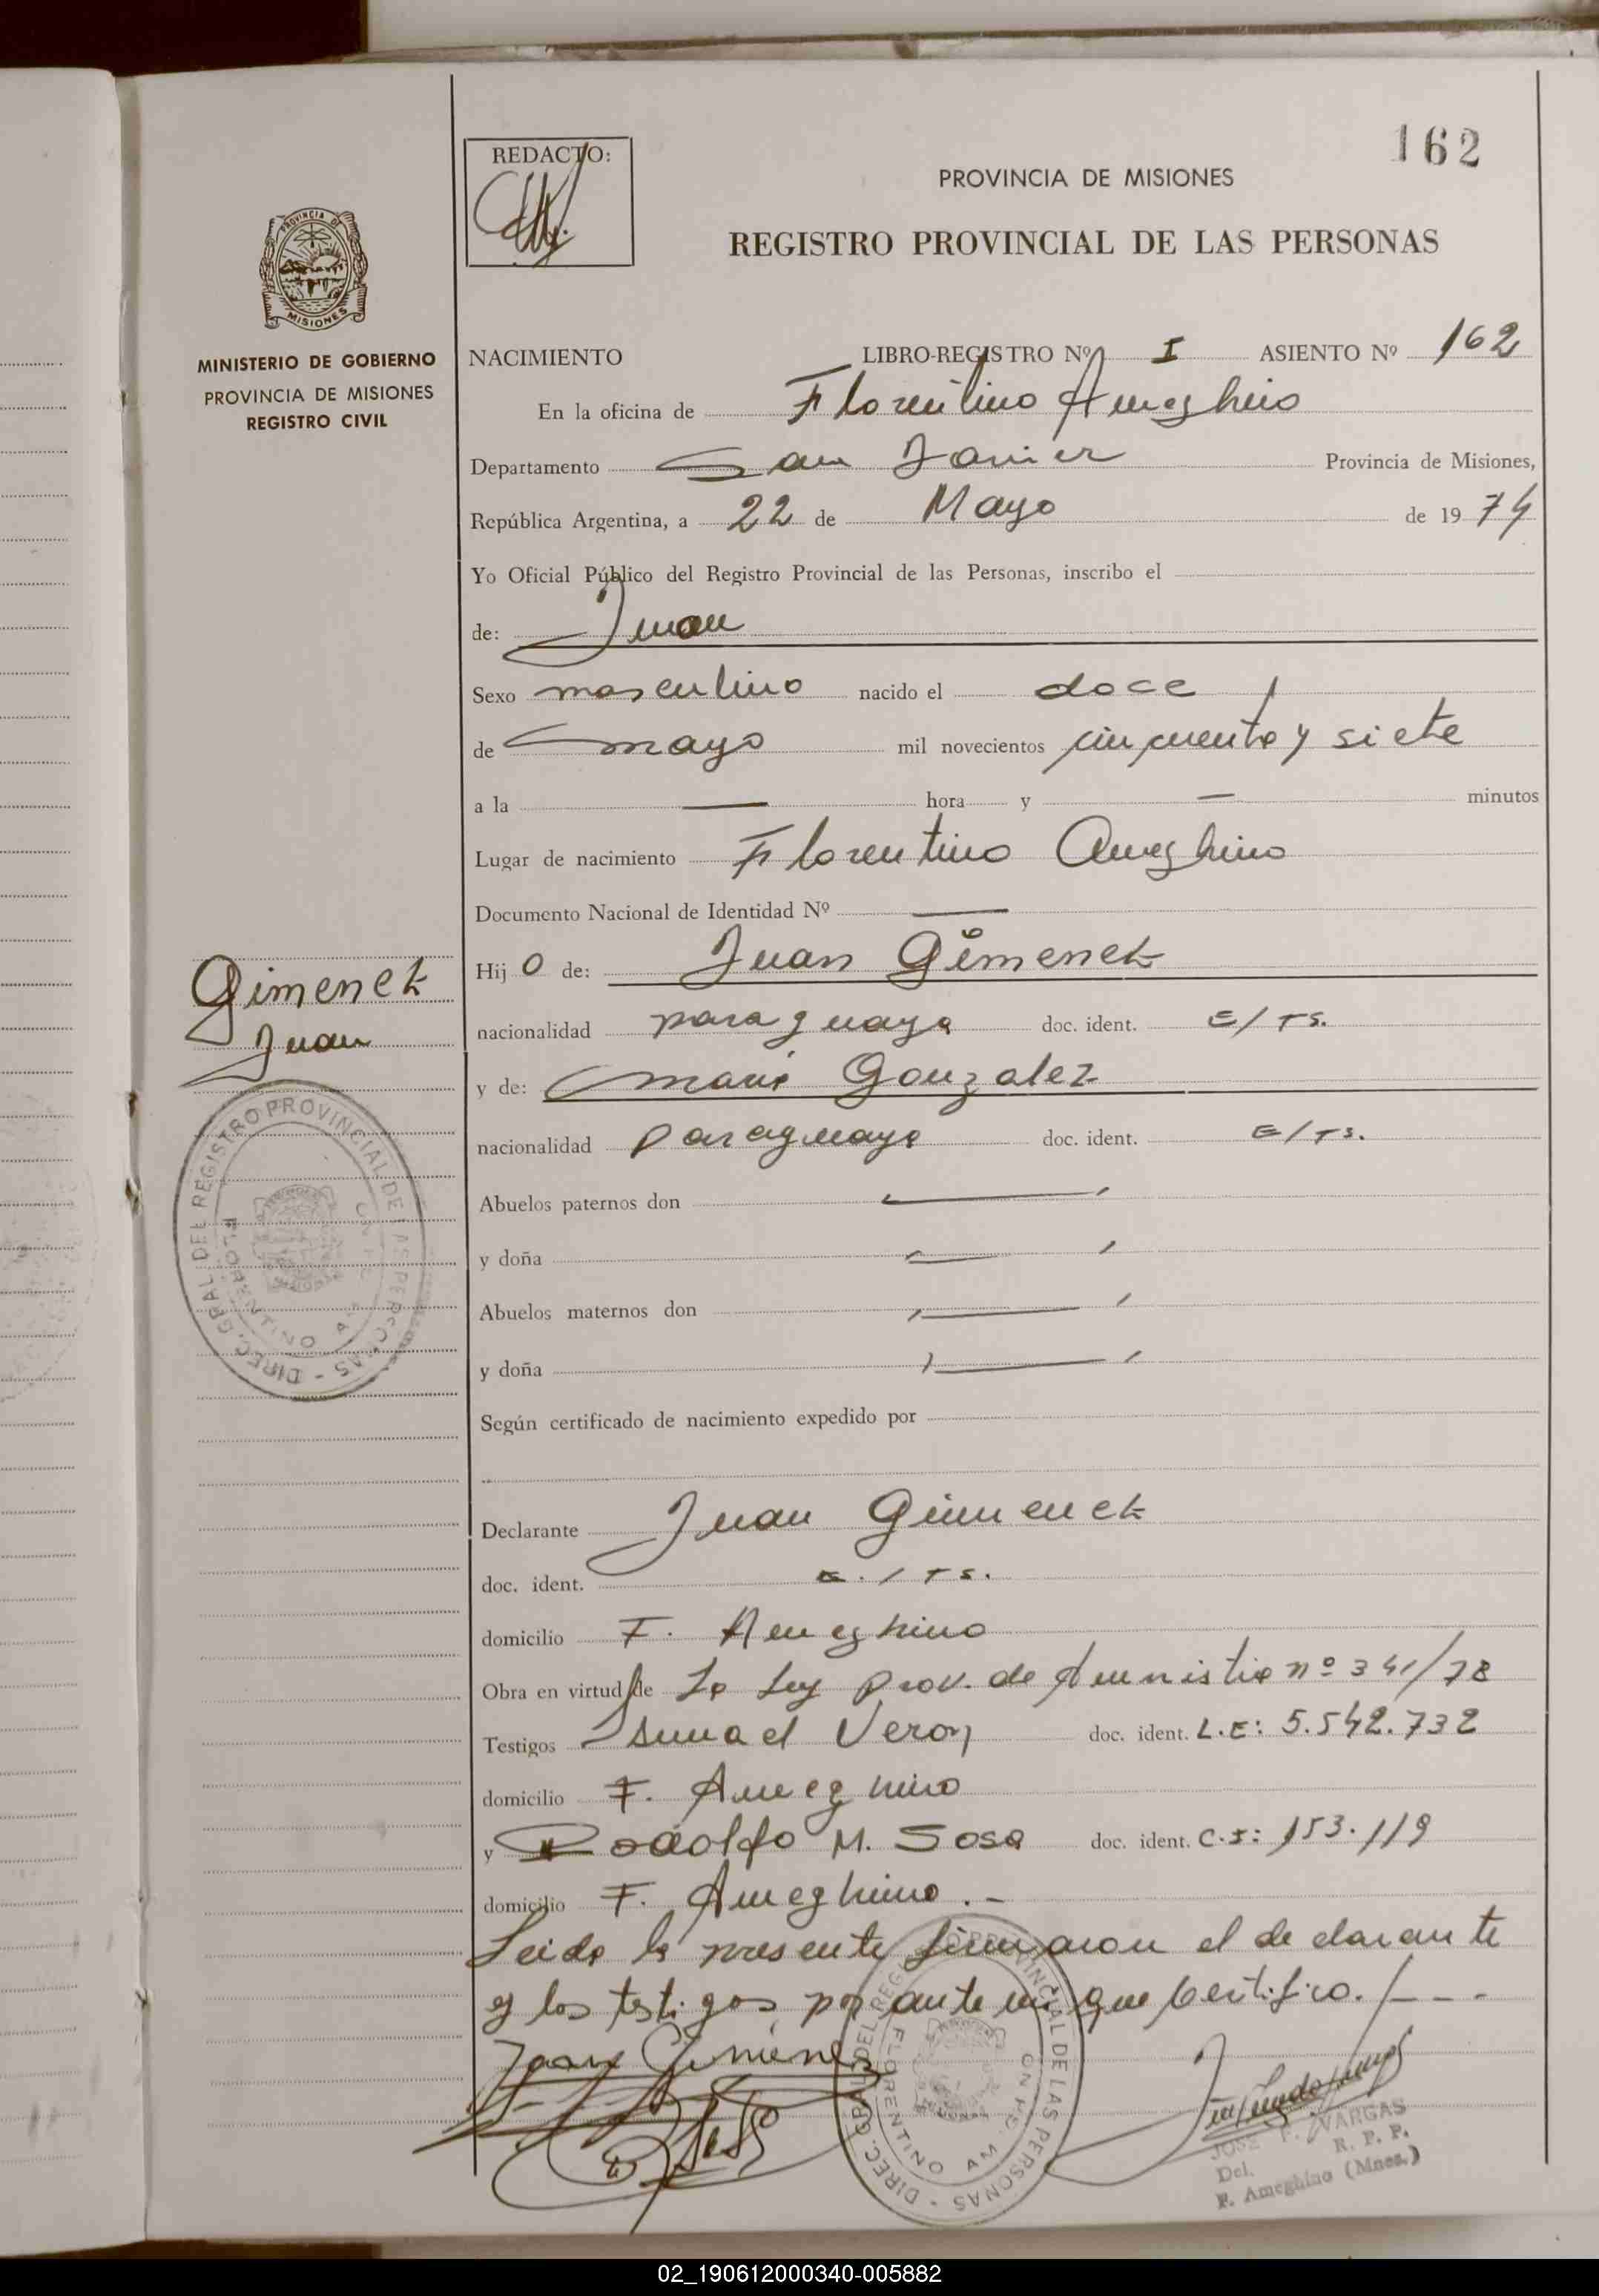 162
REDACTO:
PROVINCIA DE MISIONES
REGISTRO PROVINCIAL DE LAS PERSONAS
PROVINCIA DE
MISIONES
MINISTERIO DE GOBIERNO
PROVINCIA DE MISIONES
REGISTRO CIVIL
NACIMIENTO LIBRO-REGISTRO Nº I ASIENTO Nº 162
En la oficina de Florentino Ameghino
Departamento San Javier Provincia de Misiones,
República Argentina, a 22 de Mayo de 1974
Yo Oficial Público del Registro Provincial de las Personas, inscribo el
de: Juan
Sexo masculino nacido el doce
de mayo mil novecientos cincuenta y siete
a la — hora y — minutos
Lugar de nacimiento Florentino Ameghino
Documento Nacional de Identidad Nº —
Hij o de: Juan Gimenez
Gimenez
Juan
nacionalidad paraguaya doc. ident. E/TS.
y de: Maria Gonzalez
nacionalidad paraguaya doc. ident. E/TS.
Abuelos paternos don —
y doña —
Abuelos maternos don —
y doña —
Según certificado de nacimiento expedido por
Declarante Juan Gimenez
doc. ident. E./TS.
domicilio F. Ameghino
Obra en virtud de La Ley Prov. de Amnistia nº 341/78
Testigos Ismael Veron doc. ident. L.E: 5.542.732
domicilio F. Ameghino
y Rodolfo M. Sosa doc. ident. C.I: 153.119
domicilio F. Ameghino.-
Leida la presente firmaron el declarante
y los testigos por ante mi que certifico./---
Juan Gimenez
DIREC. GRAL. DEL REGISTRO PROVINCIAL DE LAS PERSONAS
FLORENTINO AM
DIREC. GRAL. DEL REGISTRO PROVINCIAL DE LAS PERSONAS
FLORENTINO AM
JOSE F. VARGAS
Del. R. P. P.
F. Ameghino (Mnes.)
02_190612000340-005882